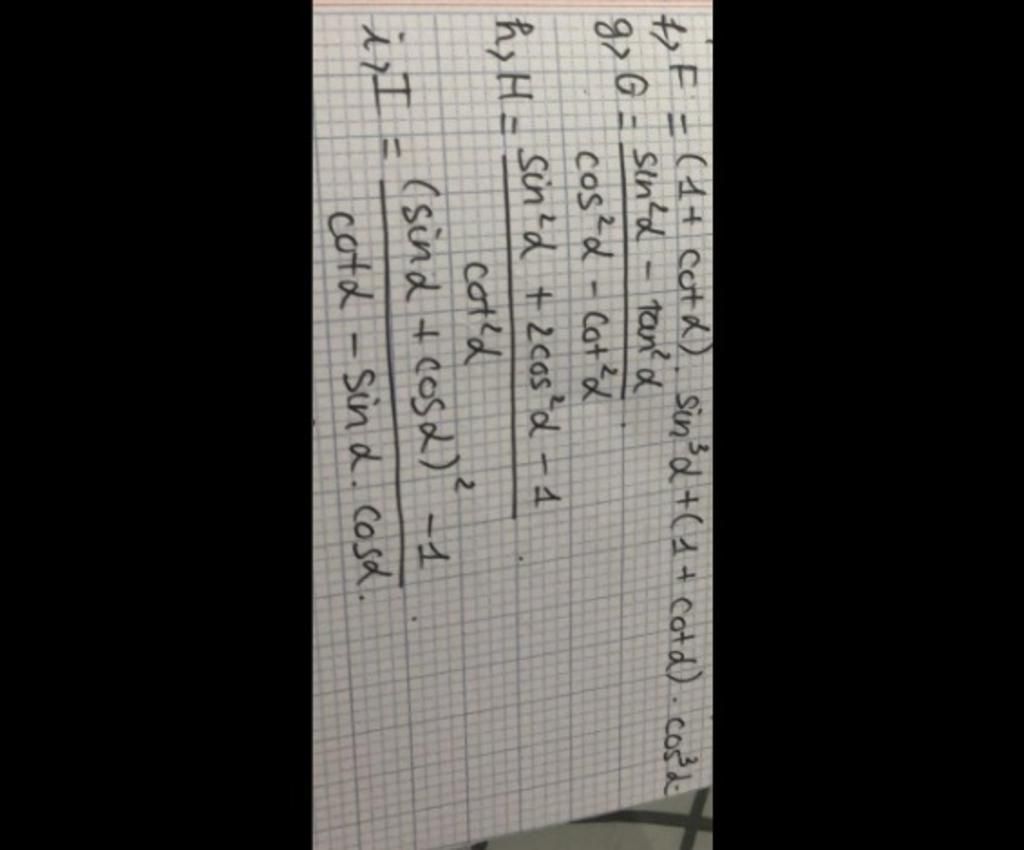 f, F = (1 + cotα). sin³α + (1 + cotα). cos³α
g, G = sin²α - tan²α
cos²α - cot²α .
h, H = sin²α + 2cos²α - 1
cot²α .
i, I = (sinα + cosα)² - 1
cotα - sinα. cosα. .